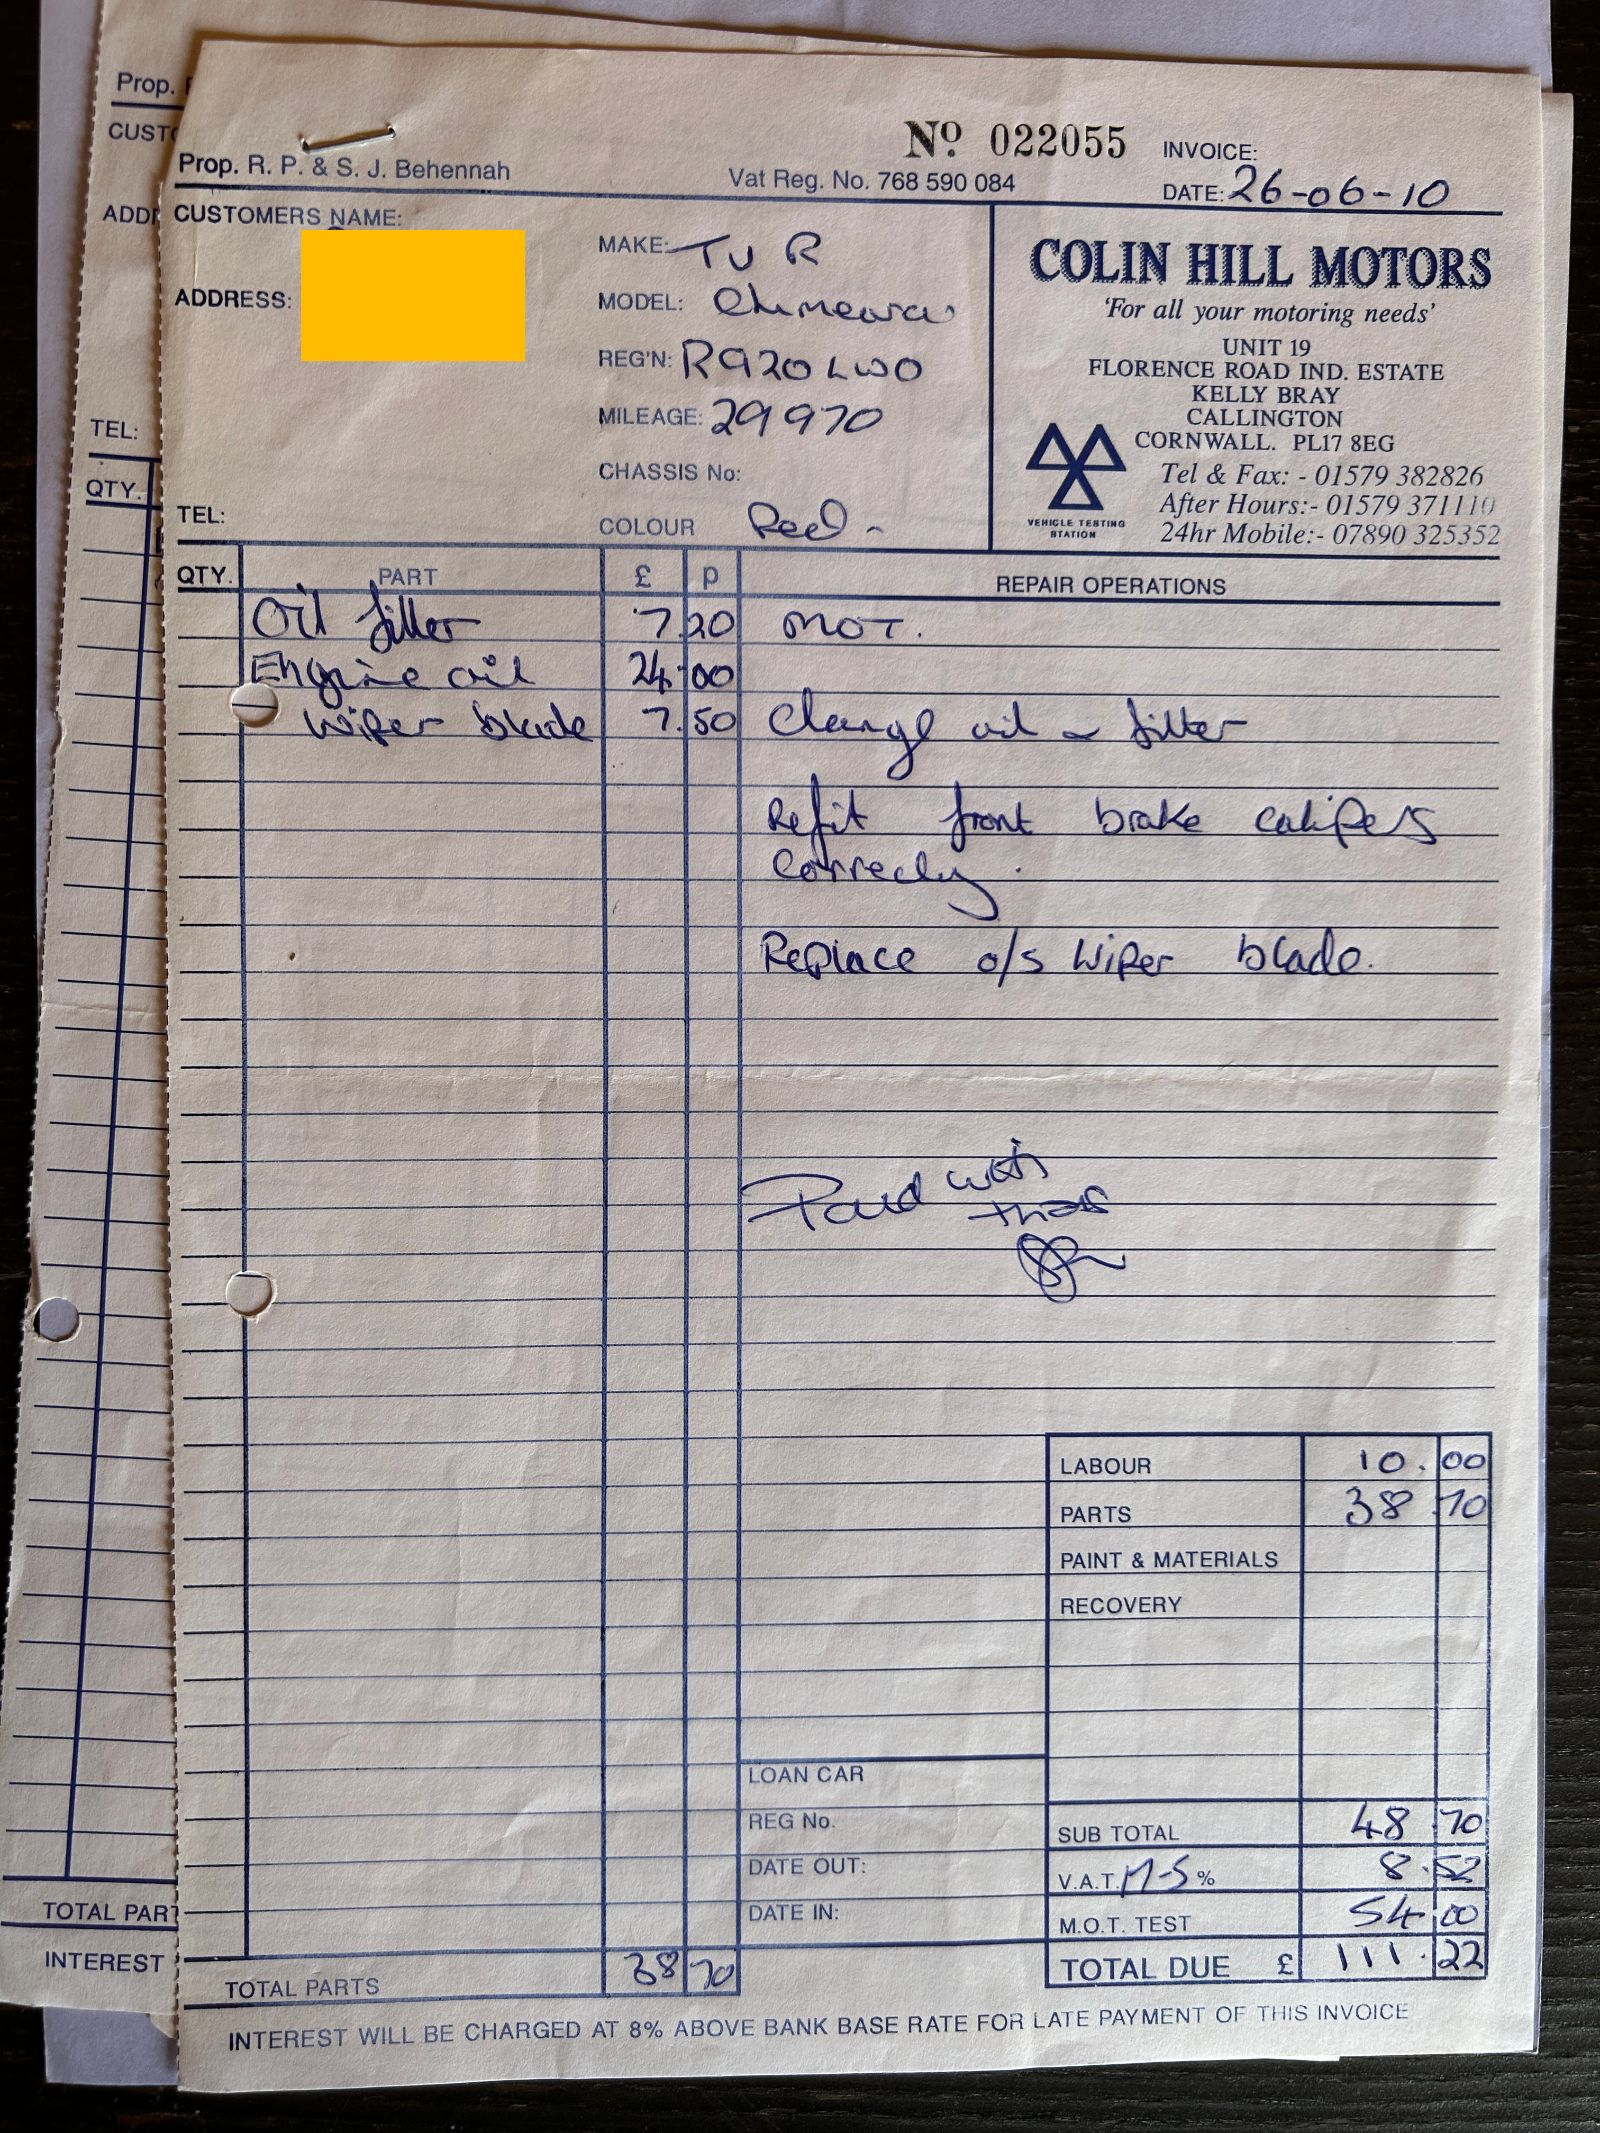 Prop.
CUSTO
ADDR
TEL:
QTY.
TOTAL PART
INTEREST
Nº 022055
INVOICE:
Prop. R. P. & S. J. Behennah
Vat Reg. No. 768 590 084
DATE: 26-06-10
CUSTOMERS NAME:
ADDRESS:
TEL:
MAKE: TVR
MODEL: Chimeara
REG'N: R920 LWO
MILEAGE: 29970
CHASSIS No:
COLOUR Red -
COLIN HILL MOTORS
'For all your motoring needs'
UNIT 19
FLORENCE ROAD IND. ESTATE
KELLY BRAY
CALLINGTON
CORNWALL. PL17 8EG
Tel & Fax: - 01579 382826
After Hours:- 01579 371110
24hr Mobile:- 07890 325352
VEHICLE TESTING
STATION
QTY. PART £ p REPAIR OPERATIONS
Oil filter 7.20 MOT.
Engine oil 24.00
Wiper blade 7.50 Change oil & filter
Refit front brake calipers
Correcly.
Replace o/s Wiper blade.
Paid with
thanks
LABOUR 10.00
PARTS 38.70
PAINT & MATERIALS
RECOVERY
LOAN CAR
REG No.
DATE OUT:
DATE IN:
SUB TOTAL 48.70
V.A.T. 17-5 % 8.52
M.O.T. TEST 54.00
TOTAL DUE £ 111.22
TOTAL PARTS 38 70
INTEREST WILL BE CHARGED AT 8% ABOVE BANK BASE RATE FOR LATE PAYMENT OF THIS INVOICE